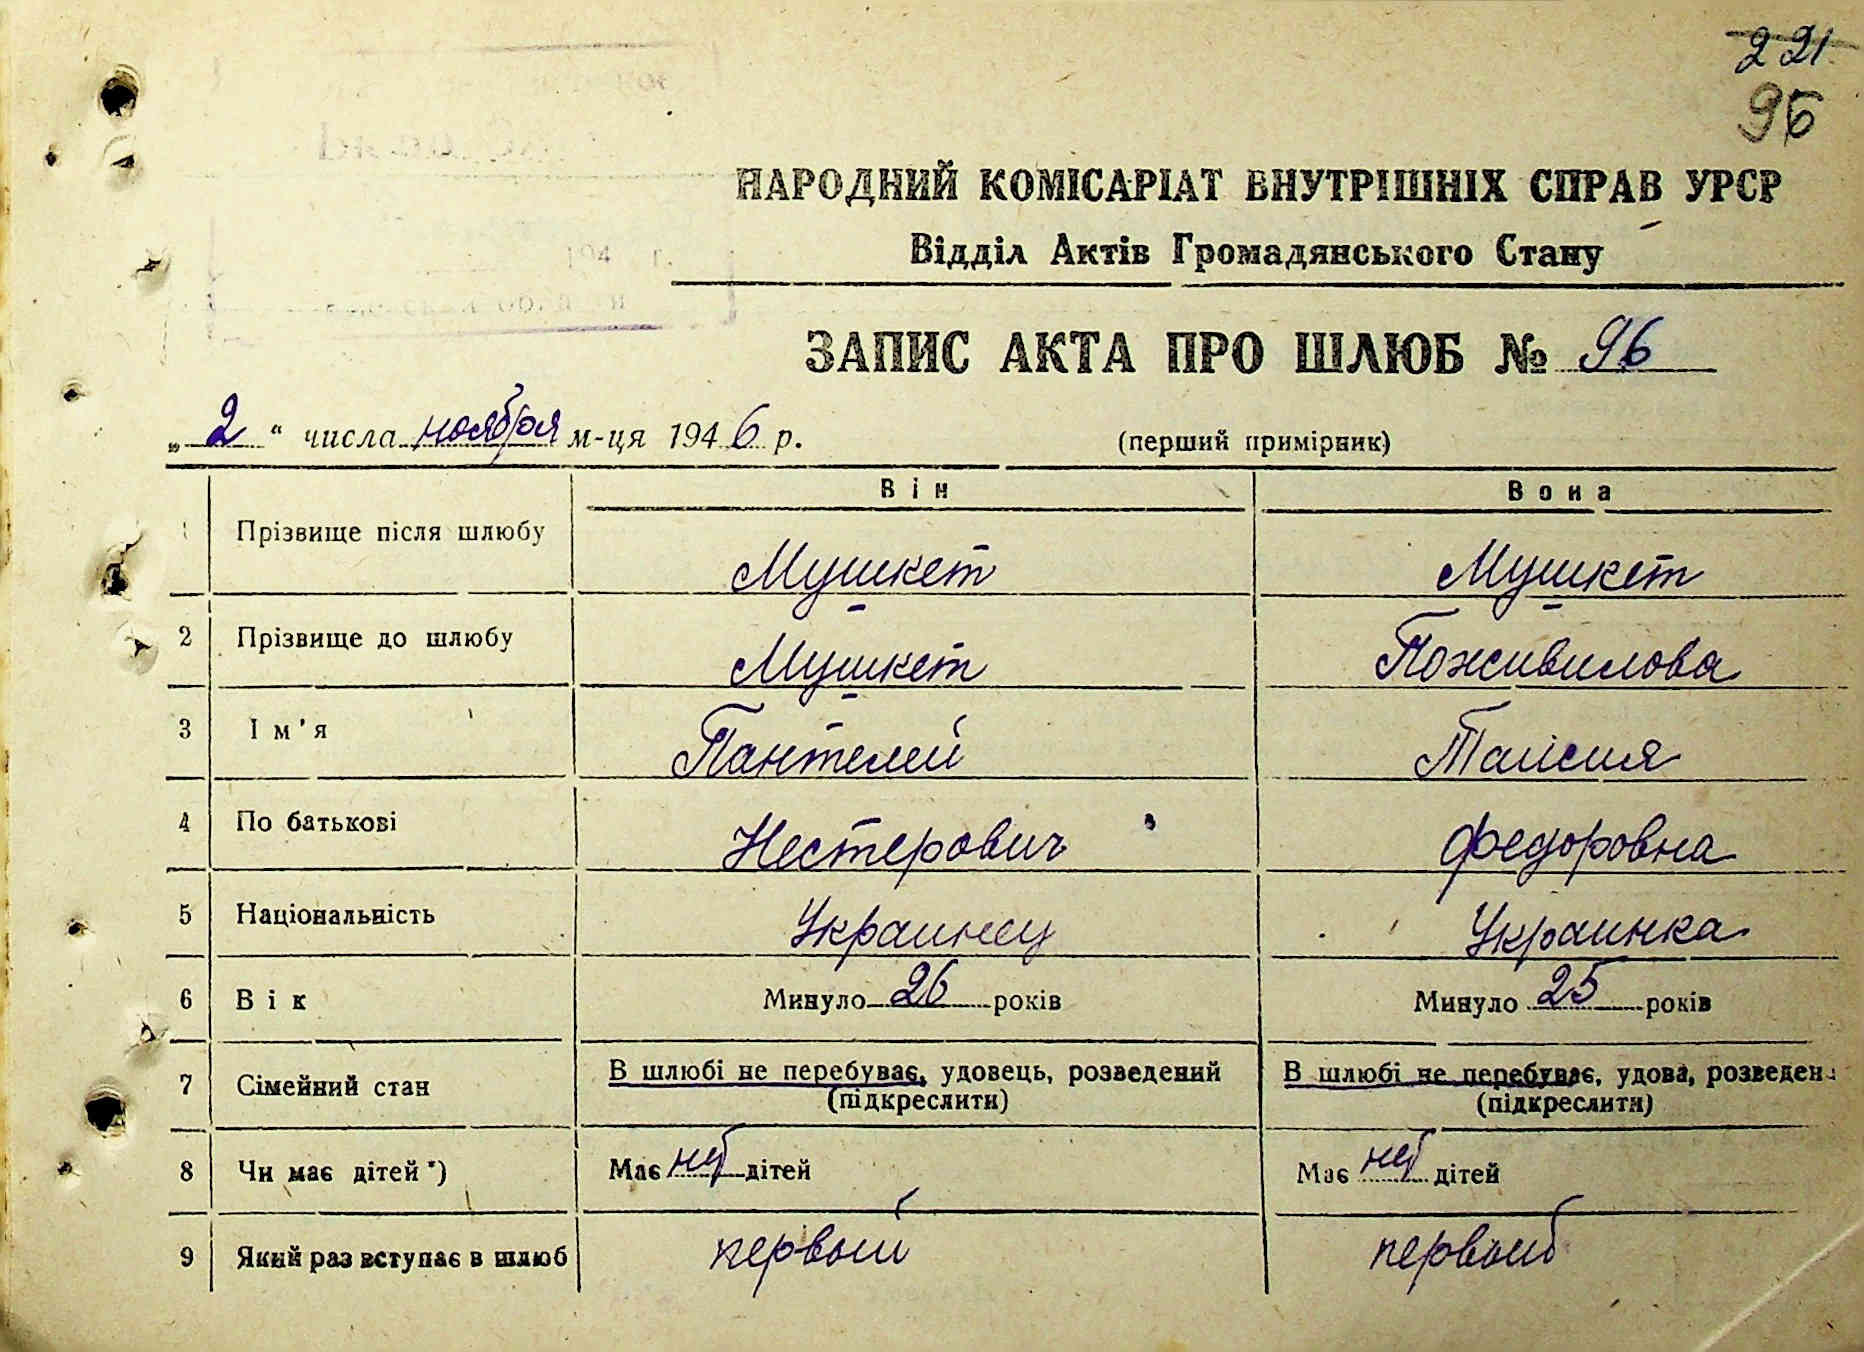 221
96
НАРОДНИЙ КОМІСАРІАТ ВНУТРІШНІХ СПРАВ УРСР
Відділ Актів Громадянського Стану
ЗАПИС АКТА ПРО ШЛЮБ № 96
„ 2 “ числа ноября м-ця 1946 р. (перший примірник)
Він Вона
1 Прізвище після шлюбу Мушкет Мушкет
2 Прізвище до шлюбу Мушкет Поживилова
3 Ім'я Пантелей Таисия
4 По батькові Нестерович Федоровна
5 Національність Украинец Украинка
6 Вік Минуло 26 років Минуло 25 років
7 Сімейний стан В шлюбі не перебуває, удовець, розведений В шлюбі не перебуває, удова, розведен
(підкреслити) (підкреслити)
8 Чи має дітей *) Має нет дітей Має нет дітей
9 Який раз вступає в шлюб первый первый